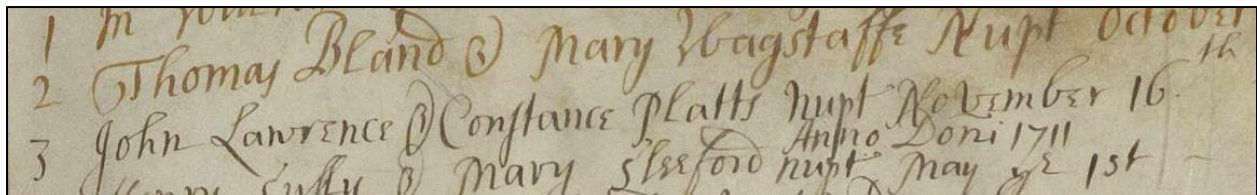 1
2 Thomas Bland & Mary Wagstaffe Nupt October
3 John Lawrence & Constance Platts Nupt November 16th
Anno Doni 1711
& Mary Sleeford nupt May ye 1st